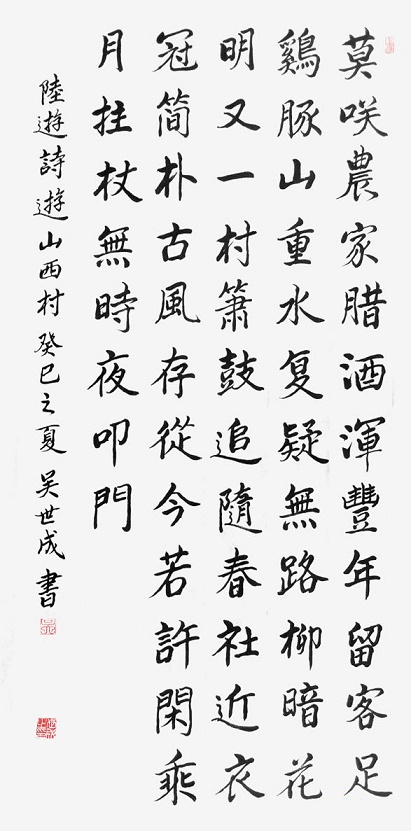 莫咲農家腊酒渾豐年留客足
鷄豚山重水复疑無路柳暗花
明又一村簫鼓追隨春社近衣
冠简朴古風存從今若許閑乘
月拄杖無時夜叩門
陸遊詩遊山西村癸巳之夏吴世成書